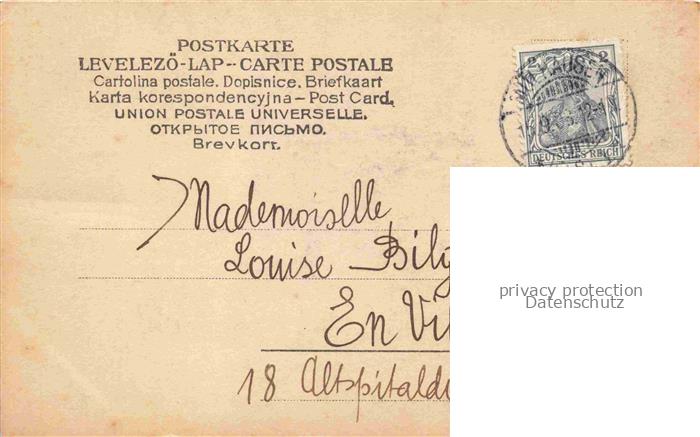 POSTKARTE
LEVELEZŐ-LAP-- CARTE POSTALE
Cartolina postale. Dopisnice. Briefkaart
Karta korespondencyjna – Post Card.
UNION POSTALE UNIVERSELLE.
ОТКРЫТОЕ ПИСЬМО.
Brevkort.
2 2
DEUTSCHES REICH
Mademoiselle
Louise Bilg
En Vil
18 Altspitald
privacy protection
Datenschutz